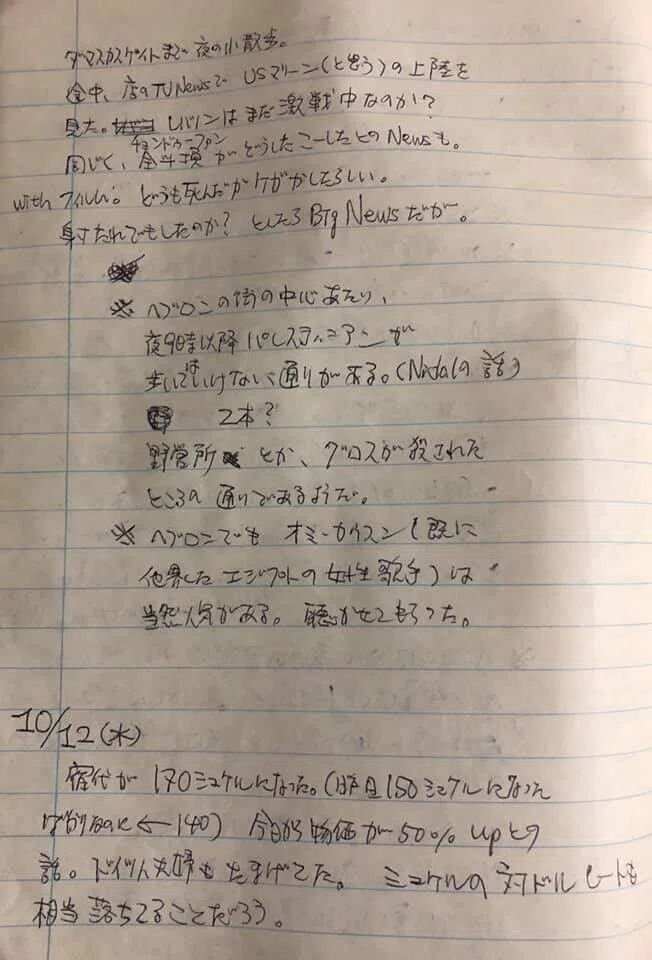 ダマスカスゲイトまで夜の小散歩。
途中、店のTV NewsでUSマリーン(と思う)の上陸を
見た。レバノンはまだ激戦中なのか?
チョンドゥーファン
同じく、全斗煥がどうしたこーしたとのNewsも。
with フィルム。どうも死んだかケガがしたらしい。
射たれでもしたのか? としたらBig Newsだが。
※ ヘブロンの街の中心あたり、
夜9時以降パレスティニアンが
歩いてはいけない通りがある。(Nidalの話)
2本?
野営所とか、グロスが殺された
ところの通りであるようだ。
※ ヘブロンでもオミ・カルスン(既に
他界したエジプトの女性歌手)は
当然人気がある。聴かせてもらった。
10/12(水)
宿代が170シュケルになった。(昨日150シュケルになった
ばかり ← 140) 今日から物価が50% upとの
話。ドイツ人夫婦もたまげてた。シュケルの対ドルレートも
相当落ちてることだろう。